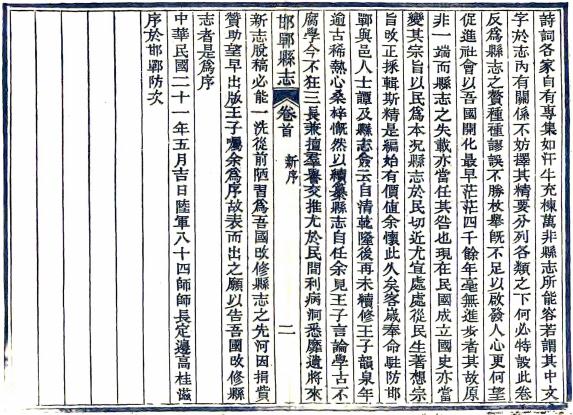 詩詞各家自有專集如汗牛充棟萬非縣志所能容若謂其中文
字於志內有關係不妨擇其精要分列各類之下何必特設此卷
反爲縣志之贅種種謬誤不勝枚舉旣不足以啟發人心更何望
促進社會以吾國開化最早茫茫四千餘年毫無進步者其故原
非一端而縣志之失載亦當任其咎也現在民國成立國史亦當
變其宗旨以民爲本況縣志於民切近尤宜處處從民生著想宗
旨改正採輯斯精是編始有價値余懷此久矣客歲奉命駐防邯
鄲與邑人士譚及縣志僉云自清乾隆後再未續修王子韻泉年
逾古稀熱心桑梓慨然以續纂縣志自任余見王子言論學古不
腐學今不狂三長兼擅羣譽交推尤於民間利病洞悉靡遺將來
邯鄲縣志 卷首 新序 二
新志脫稿必能一洗從前陋習爲吾國改修縣志之先河因捐貲
贊助望早出版王子囑余爲序故表而出之願以告吾國改修縣
志者是爲序
中華民國二十一年五月吉日陸軍八十四師師長定邊高桂滋
序於邯鄲防次